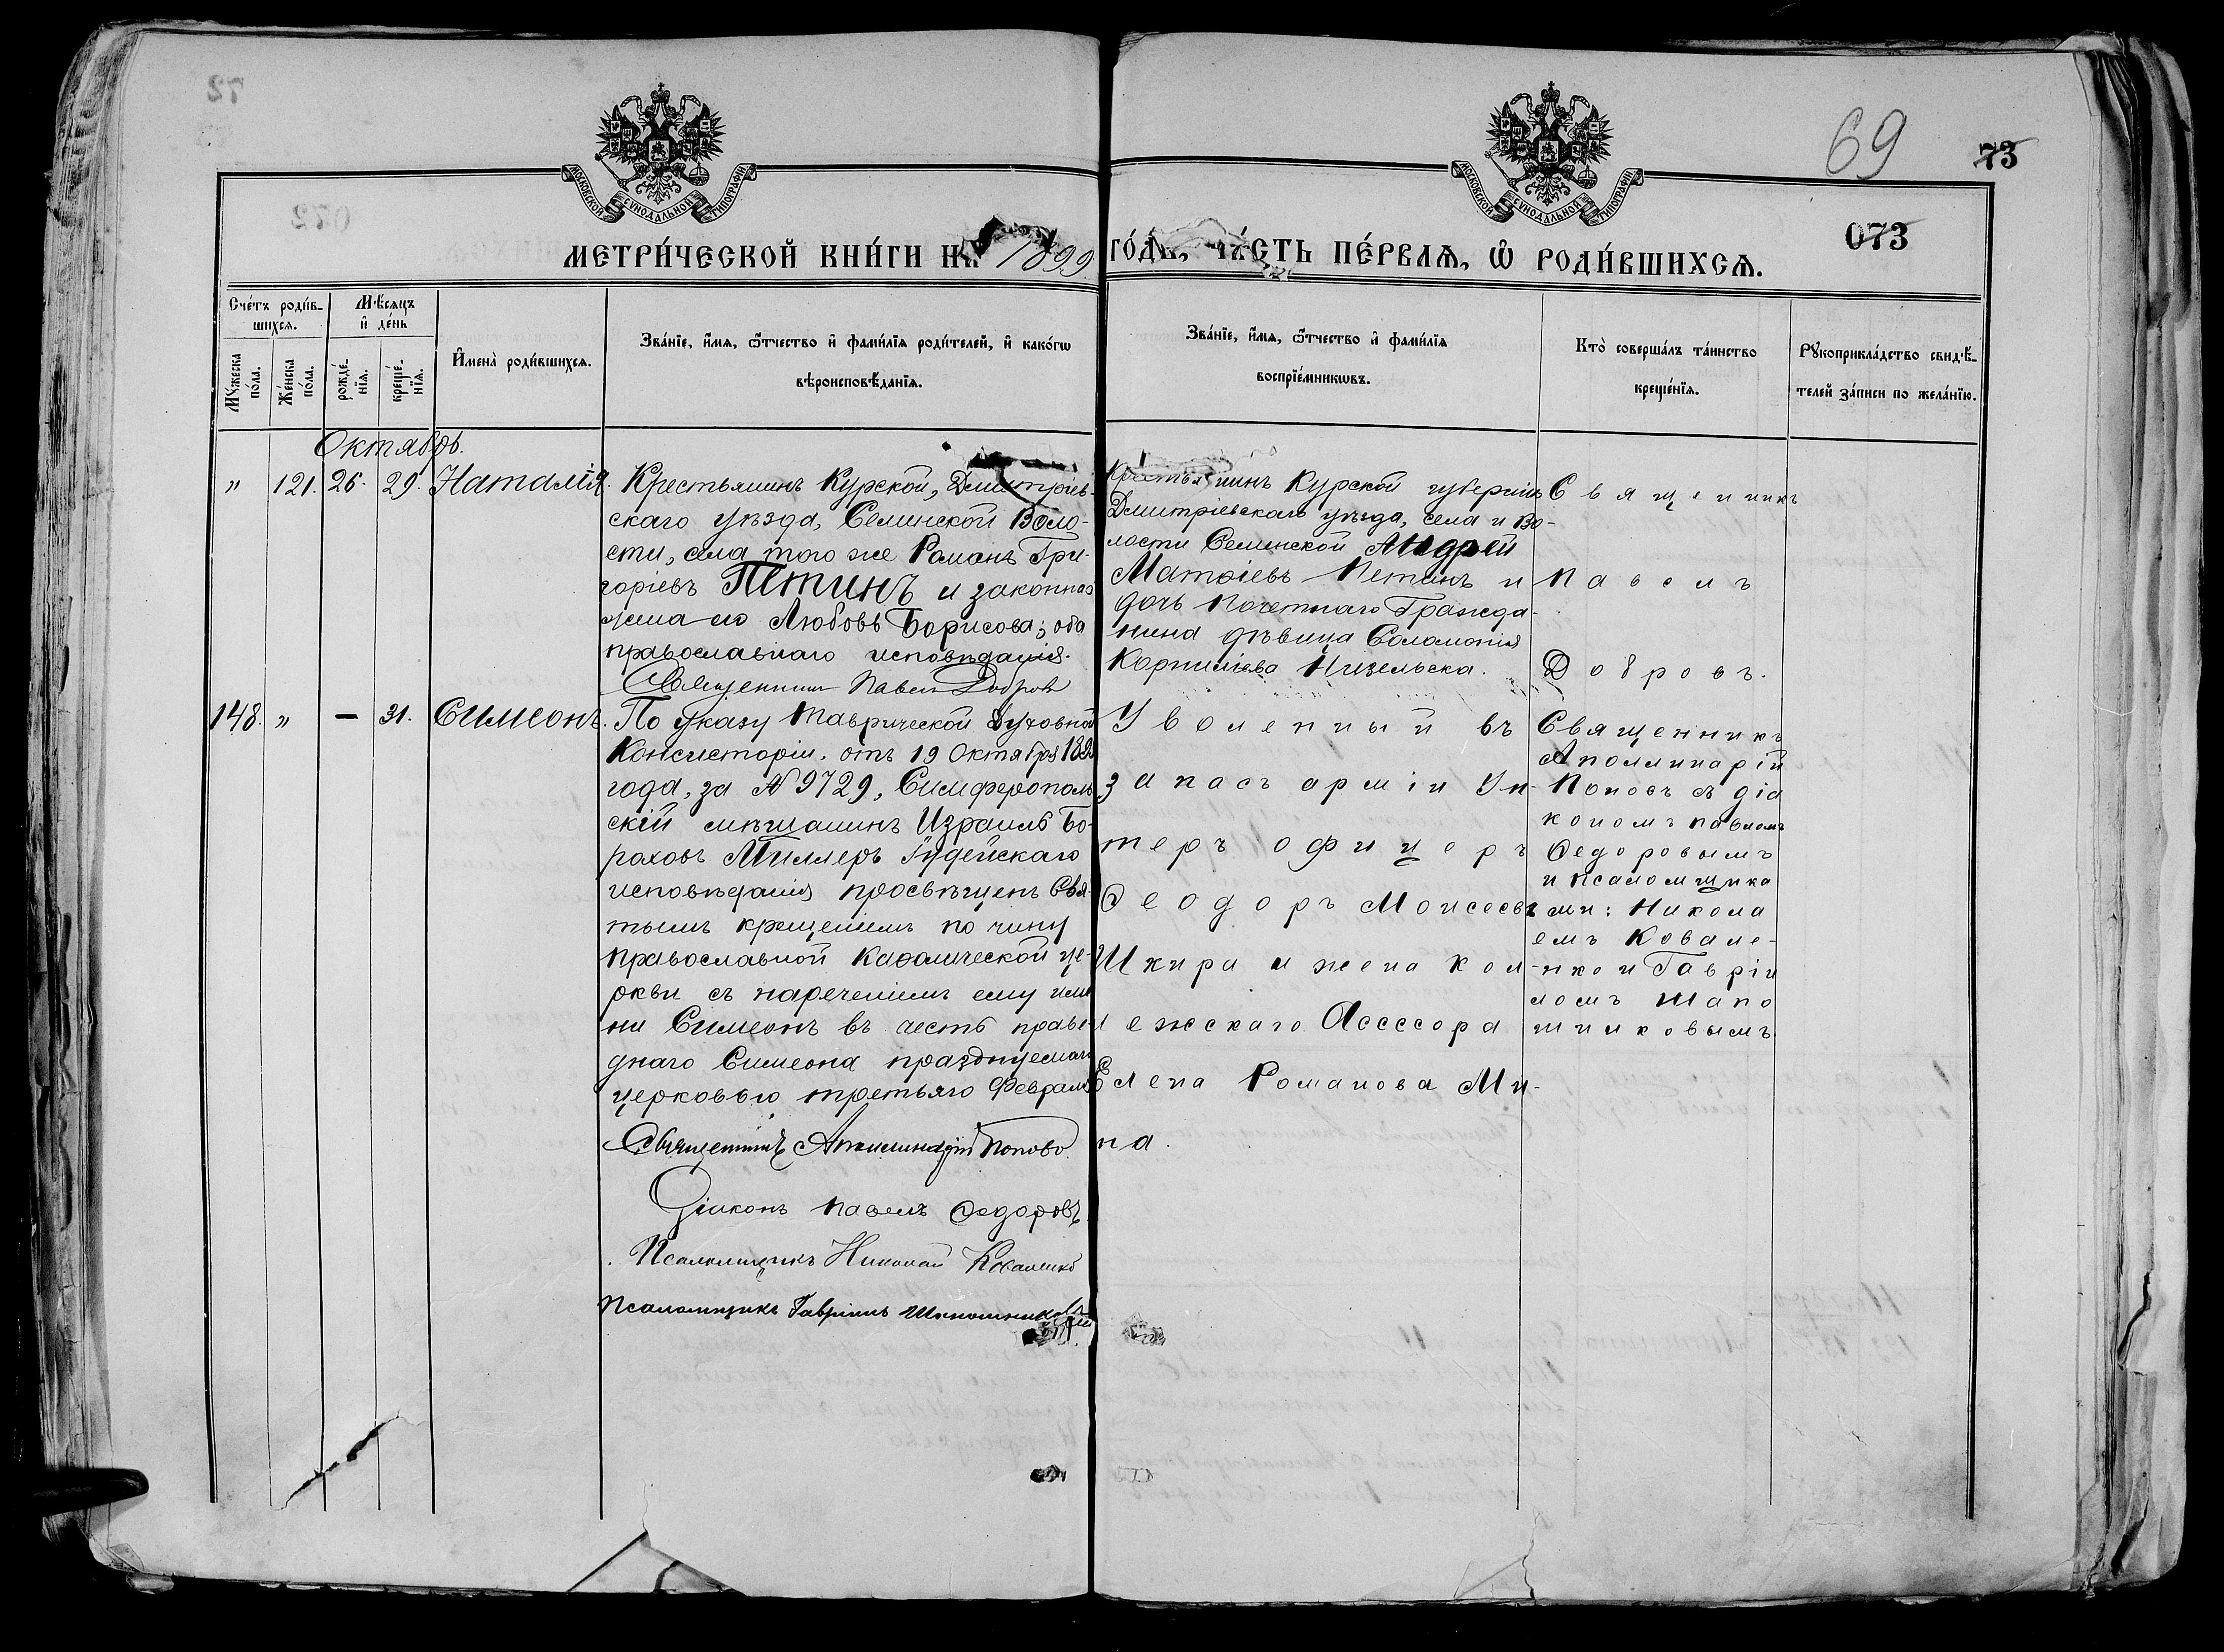 72
69
73
МОСКОВСКОЙ СѴНОДАЛЬНОЙ ТИПОГРАФІИ
МОСКОВСКОЙ СѴНОДАЛЬНОЙ ТИПОГРАФІИ
072
073
МЕТРИ́ЧЕСКОЙ КНИ́ГИ НА 1899 ГО́ДЪ, ЧА́СТЬ ПЕ́РВАѦ, Ѡ҆ РОДИ́ВШИХСѦ.
Сче́тъ роди́в-
шихсѧ.
Мꙋ́жеска по́ла.
Же́нска по́ла.
Мѣ́сѧцъ
и҆ де́нь
рожде́-
нїѧ.
креще́-
нїѧ.
И҆мена̀ роди́вшихсѧ.
Зва́нїе, и҆́мѧ, ѻ҆́тчество и҆ фами́лїѧ роди́телей, и҆ како́гѡ
вѣроисповѣ́данїѧ.
Зва́нїе, и҆́мѧ, ѻ҆́тчество и҆ фами́лїѧ
воспрїе́мникѡвъ.
Кто̀ соверша́лъ та́инство
креще́нїѧ.
Рꙋкоприкла́дство свидѣ́-
телей за́писи по жела́нїю.
Октябрь.
" 121. 26. 29. Наталія.
Крестьянинъ Курской, Дмитріев-
скаго уѣзда, Селинской Воло-
сти, села того же Романъ Гри-
горіевъ Петинъ и законная
жена его Любовь Борисова; оба
православнаго исповѣданія.
Священникъ Павелъ Добровъ
Крестьянинъ Курской губерніи
Дмитріевскаго уѣзда, села и Во-
лости Селинской Андрей
Матфіевъ Петинъ и
дочь Почетнаго Гражда-
нина дѣвица Соломонія
Корниліева Низельска.
Священникъ
Павелъ
Добровъ.
148. " — 31. Симеонъ.
По указу Таврической Духовной
Консисторіи, отъ 19 Октября 1899
года, за № 9729, Симферополь
скій мѣщанинъ Израиль Бо-
роховъ Миллеръ Іудейскаго
исповѣданія просвѣщенъ Свя-
тымъ крещеніемъ по чину
православной Каѳолической це-
ркви съ нареченіемъ ему име
ни Симеонъ въ честь праве-
днаго Симеона празднуемаго
церковью третьяго Февраля
Священникъ Аполлинарій Поповъ.
Діаконъ Павелъ Ѳедоровъ.
Псаломщикъ Николай Коваленко
Псаломщикъ Гавріилъ Шапошниковъ
Уволенный въ
запасъ арміи Ун-
теръ офицеръ
Ѳеодоръ Моисеевъ
Шкира и жена Кол-
лежскаго Ассесора
Елена Романова Ми-
на.
Священникъ
Аполлинарій
Поповъ съ діа
кономъ Павломъ
Ѳедоровымъ
и псаломщика
ми: Никола
емъ Ковале-
нко и Гавріи
ломъ Шапо
шниковымъ.